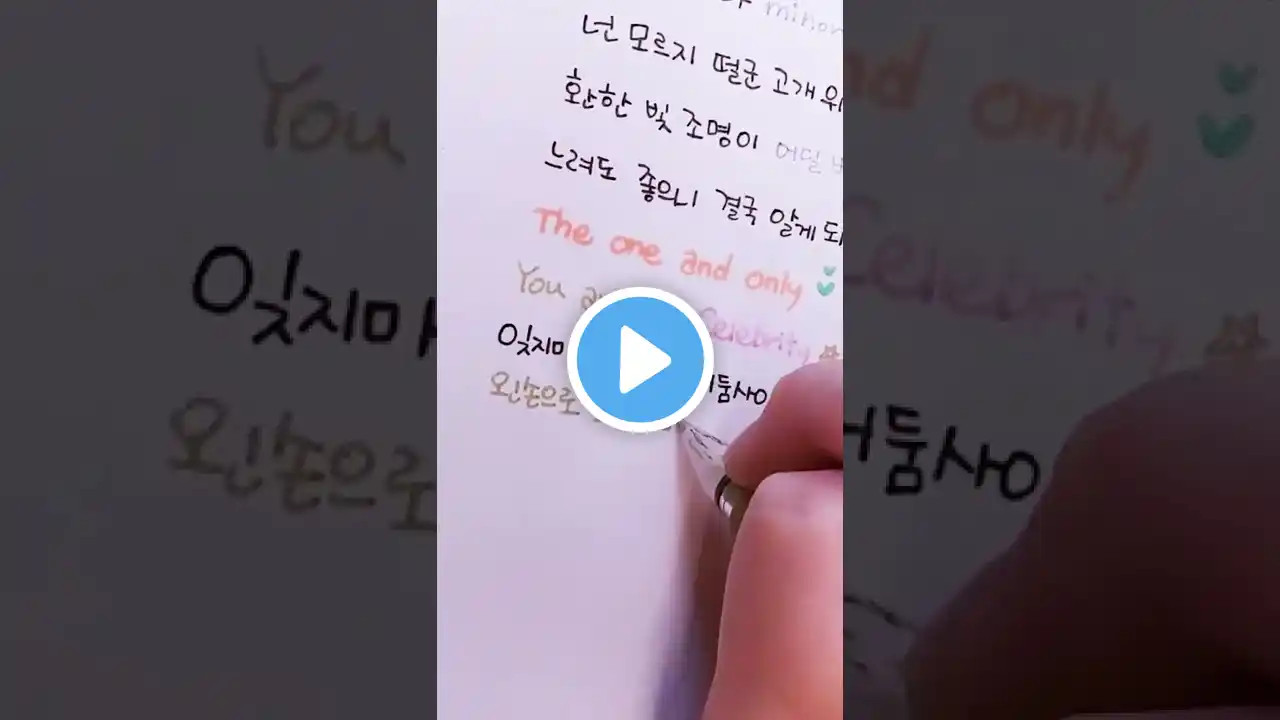 minor
넌 모르지 떨군 고개 위
환한 빛 조명이 어딜
느려도 좋으니 결국 알게
The one and only
You Celebrity
잊지마
왼손으로